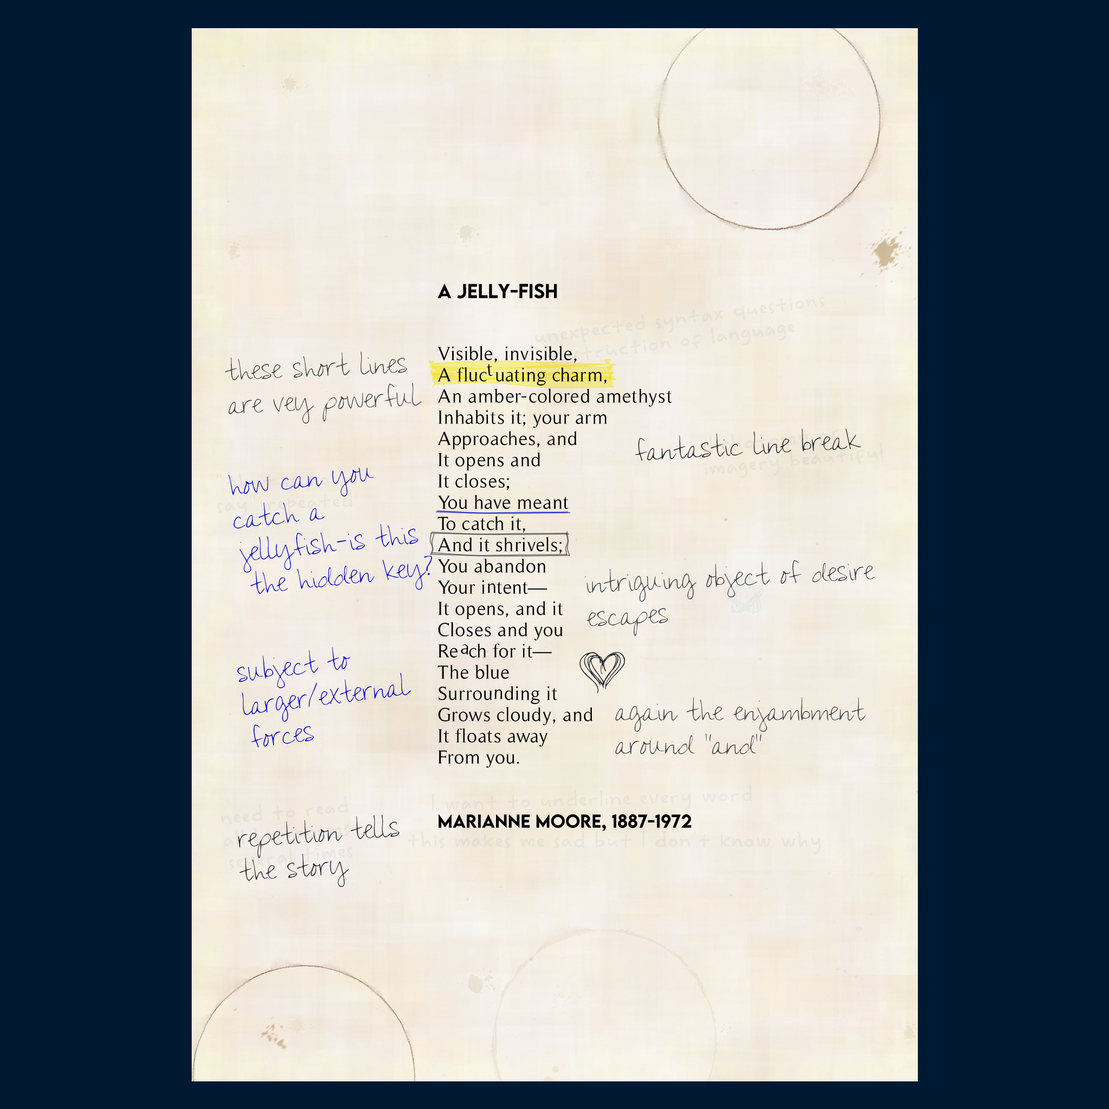 A JELLY-FISH
unexpected syntax questions
truction of language
Visible, invisible,
A fluctuating charm,
An amber-colored amethyst
Inhabits it; your arm
Approaches, and
It opens and
It closes;
You have meant
To catch it,
And it shrivels;
You abandon
Your intent—
It opens, and it
Closes and you
Reach for it—
The blue
Surrounding it
Grows cloudy, and
It floats away
From you.
MARIANNE MOORE, 1887-1972
these short lines
are vey powerful
how can you
catch a
jellyfish-is this
the hidden key?
say repeated
subject to
larger/external
forces
repetition tells
the story
need to read
several times
fantastic line break
imagery beautiful
intriguing object of desire
escapes
again the enjambment
around "and"
I want to underline every word
this makes me sad but I don't know why